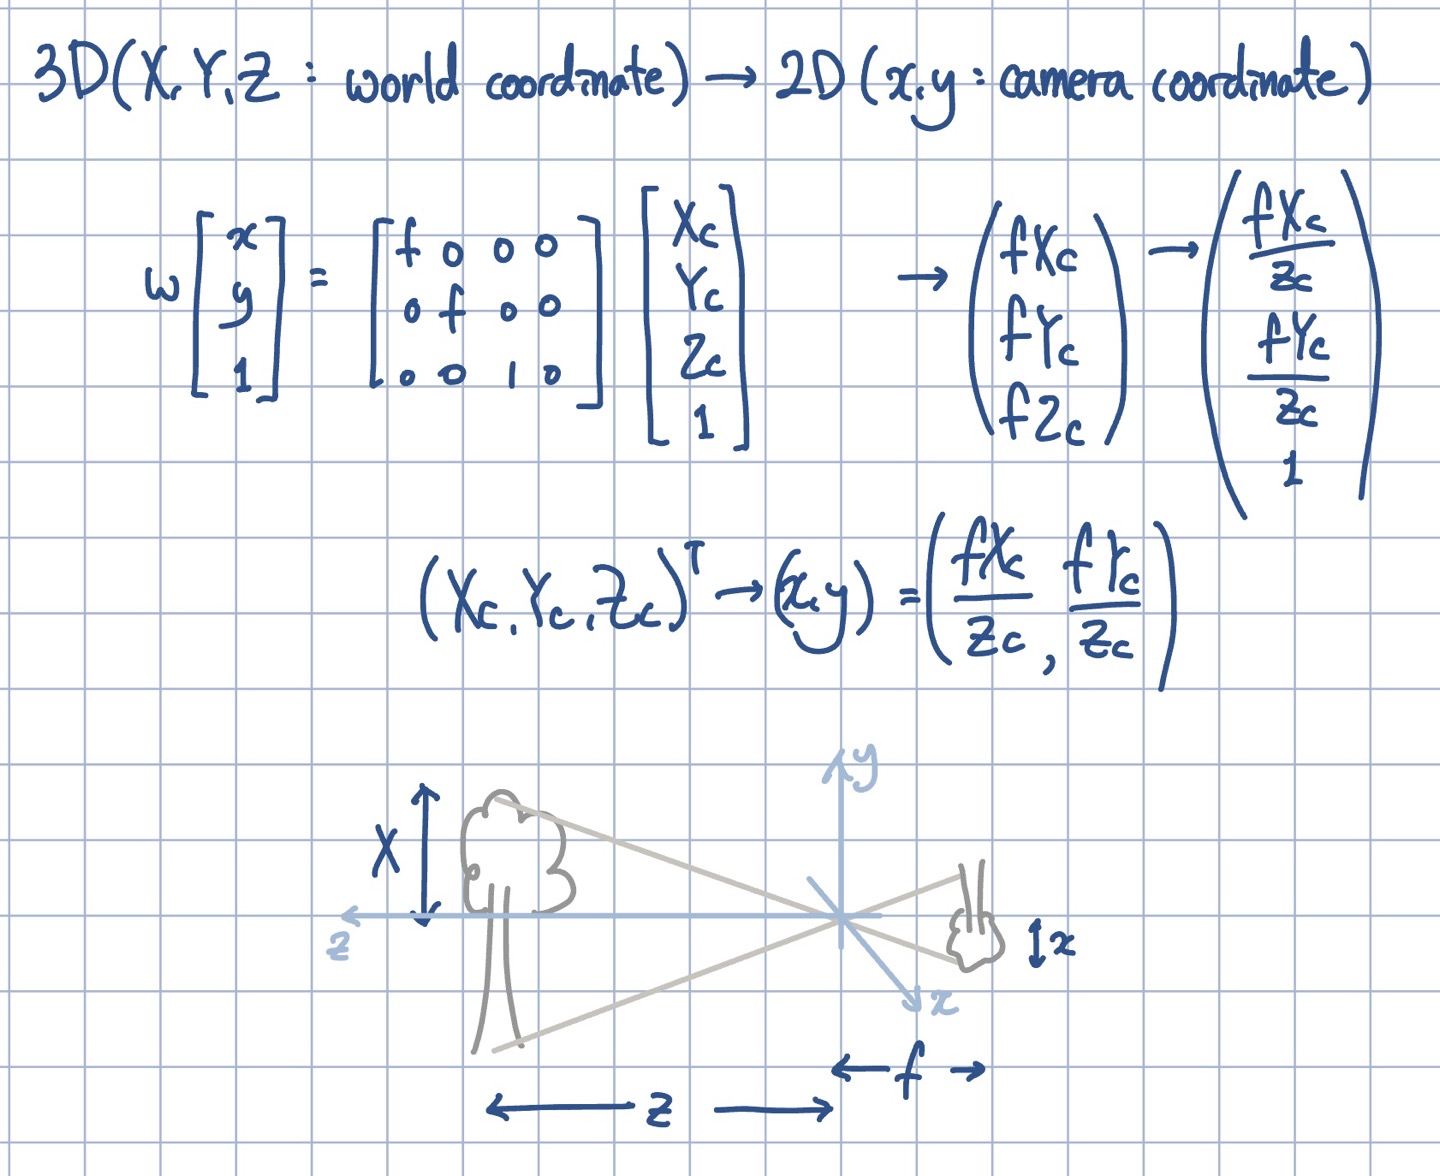 3D(X,Y,Z : world coordinate) → 2D(x,y : camera coordinate)
w [x y 1] = [f 0 0 0; 0 f 0 0; 0 0 1 0] [Xc Yc Zc 1] → (fXc fYc fZc) → (fXc/Zc fYc/Zc 1)
(Xc,Yc,Zc)ᵀ → (x,y) = (fXc/Zc, fYc/Zc)
y
X
z
x
x
f
z